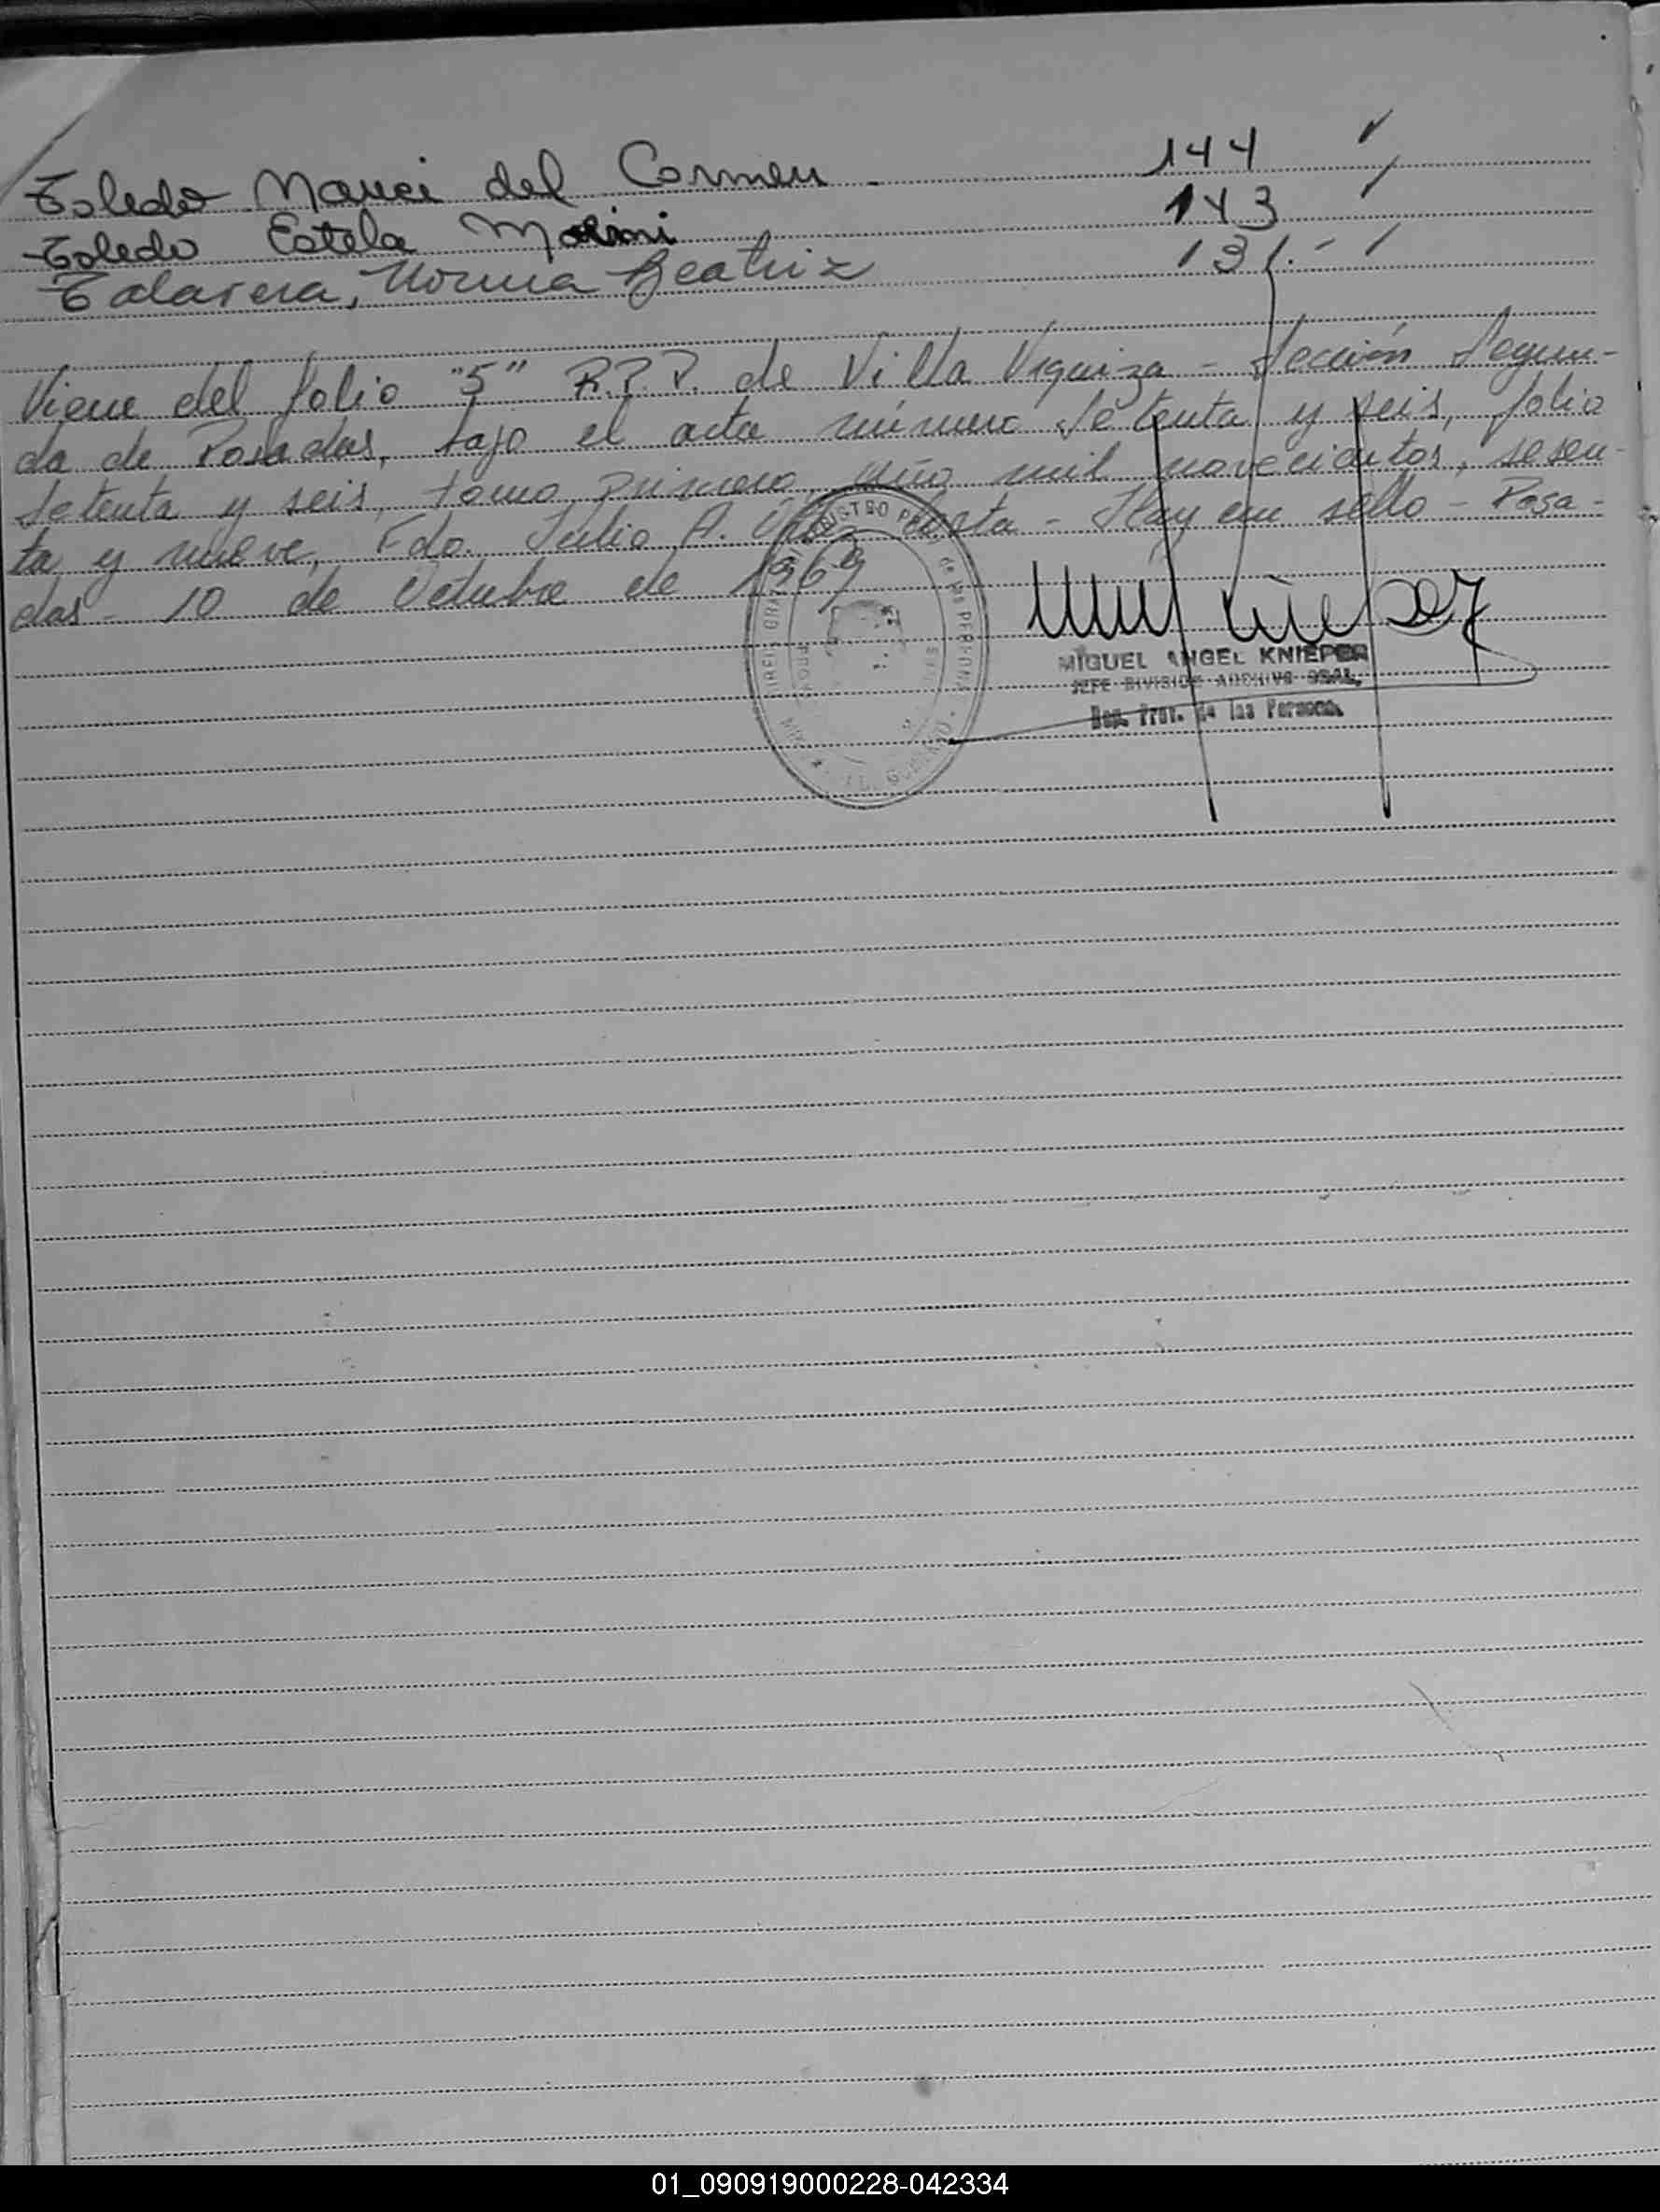 Toledo Marici del Carmen - 144
Toledo Estela Marini 143
Talavera, Norma Beatriz 131.-
Viene del folio "5" R.P.P. de Villa Urquiza - Sección Segun-
da de Posadas, bajo el acta número setenta y seis, folio
setenta y seis, tomo primero, año mil novecientos, sesen-
ta y nueve, Fdo. Julio A. - Hay un sello - Posa-
das - 10 de Octubre de 1969
MIGUEL ANGEL KNIEPER
JEFE DIVISION ARCHIVO GRAL.
Reg. Prov. de las Personas
01_090919000228-042334